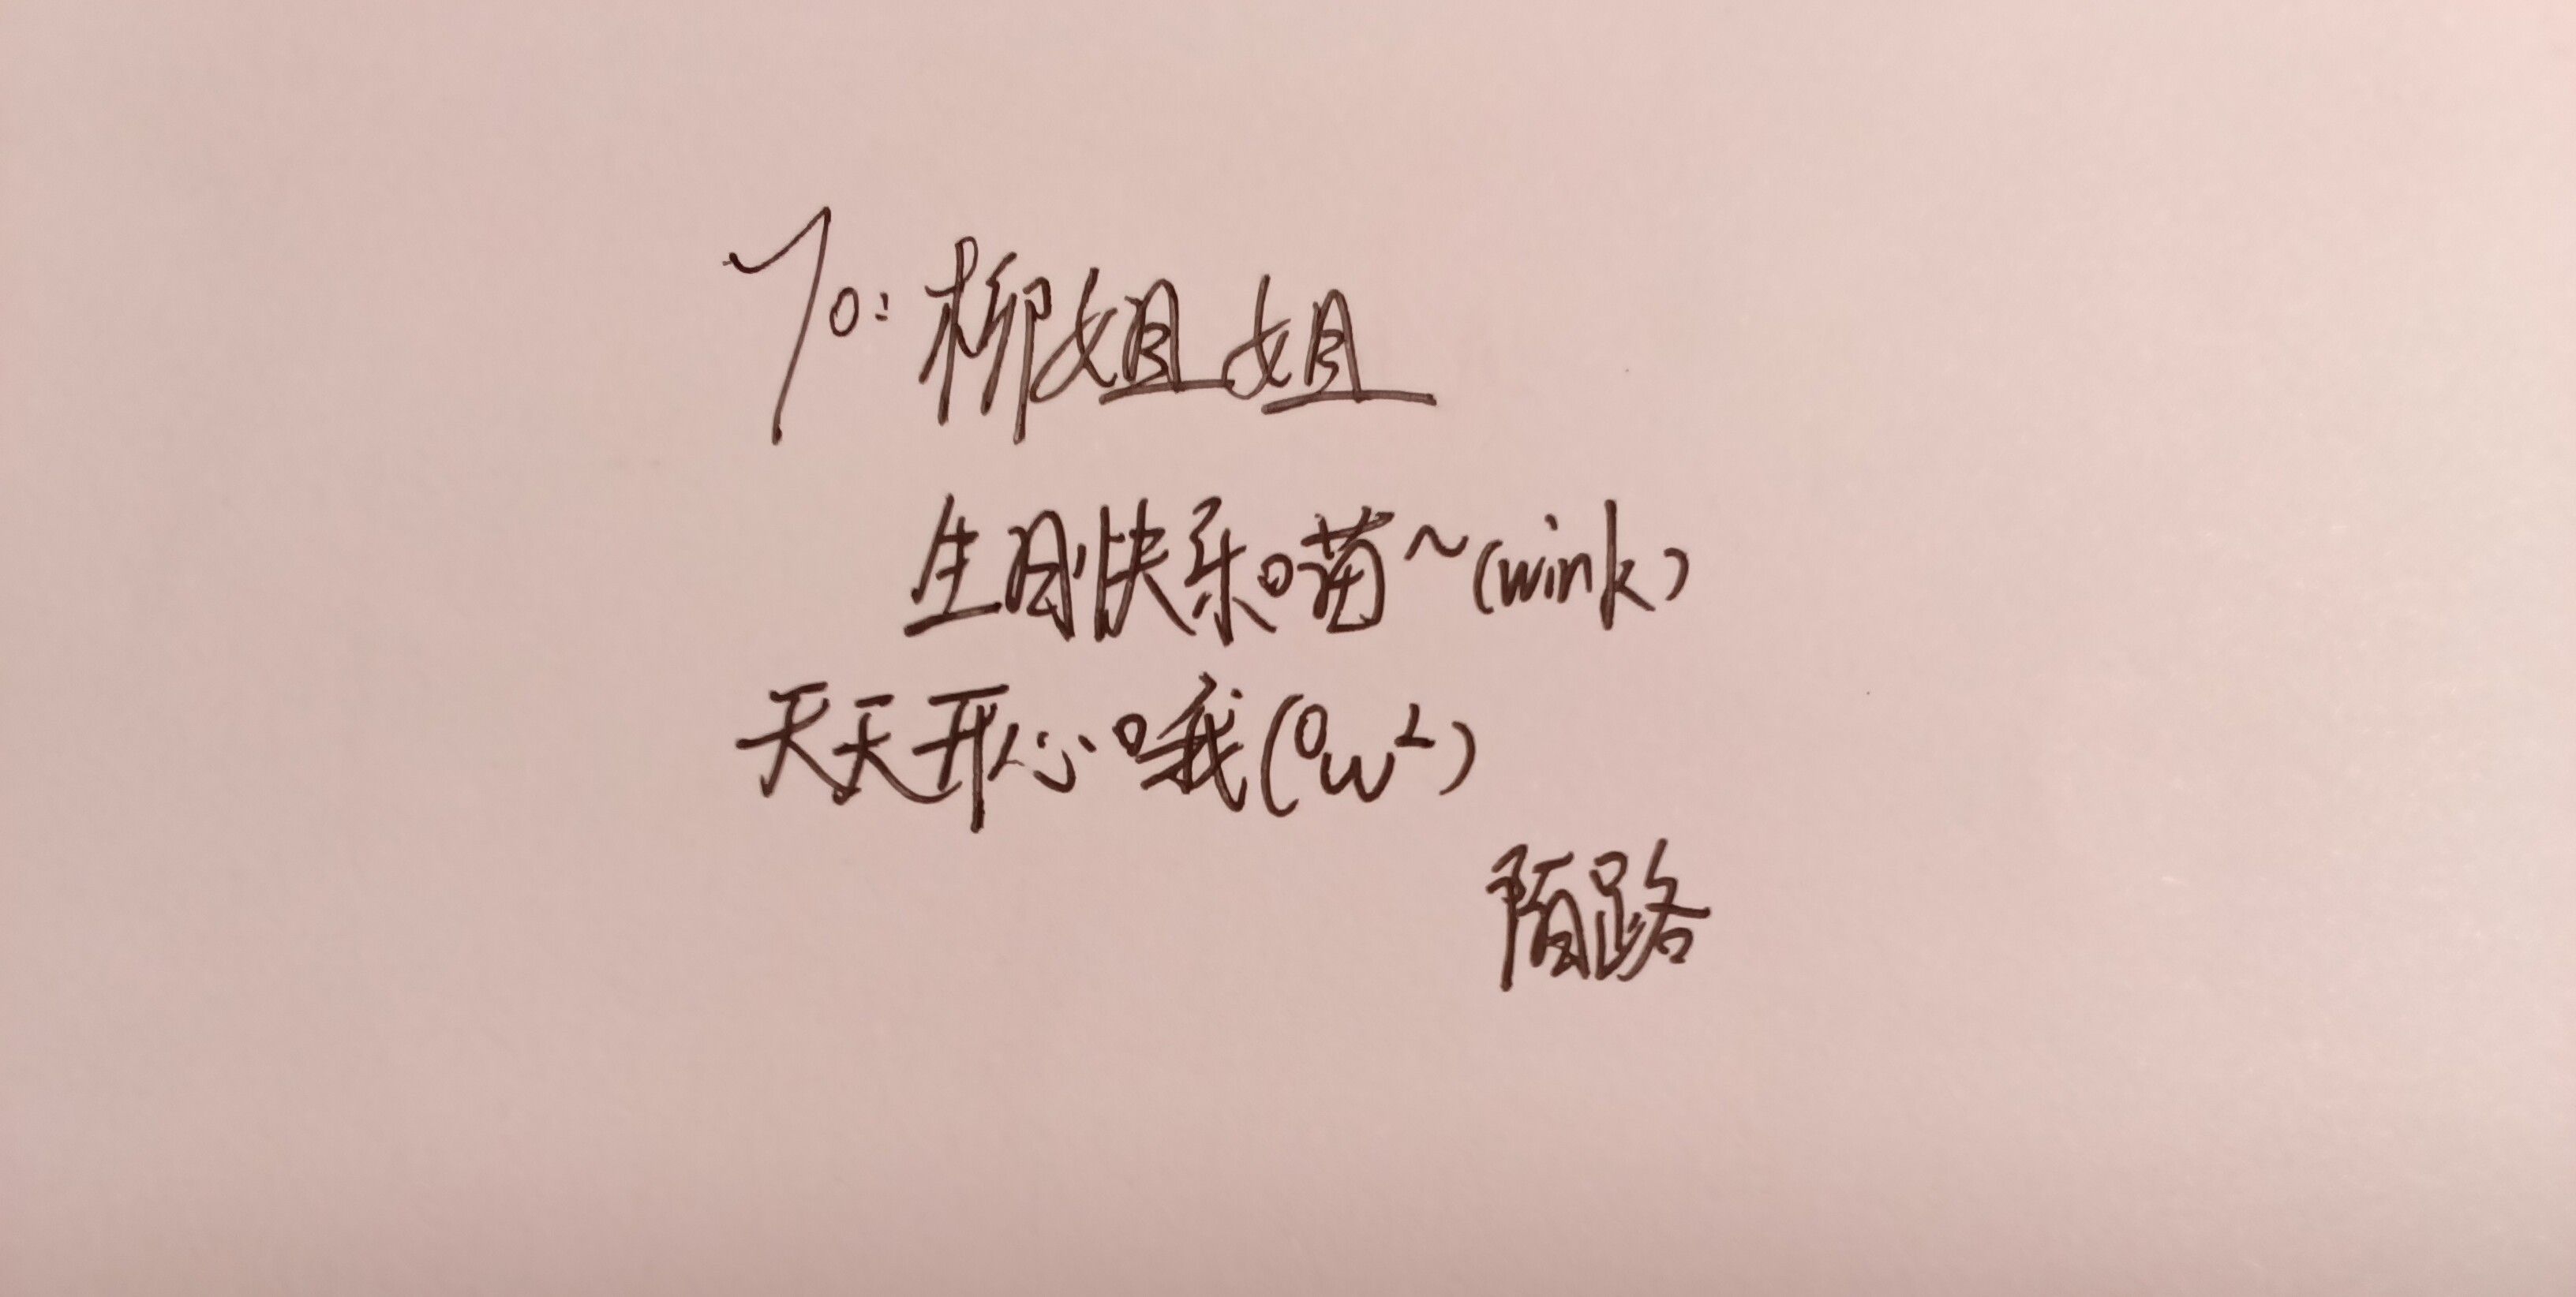 To:柳姐姐
生日快乐喵~(wink)
天天开心哦(OwL)
陌路